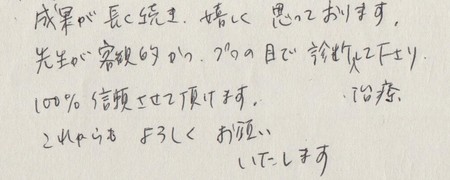 成果が長く続き、嬉しく思っております。
先生が客観的かつ、プロの目で診断して下さり、
治療
100%信頼させて頂けます。
これからもよろしくお願い
いたします